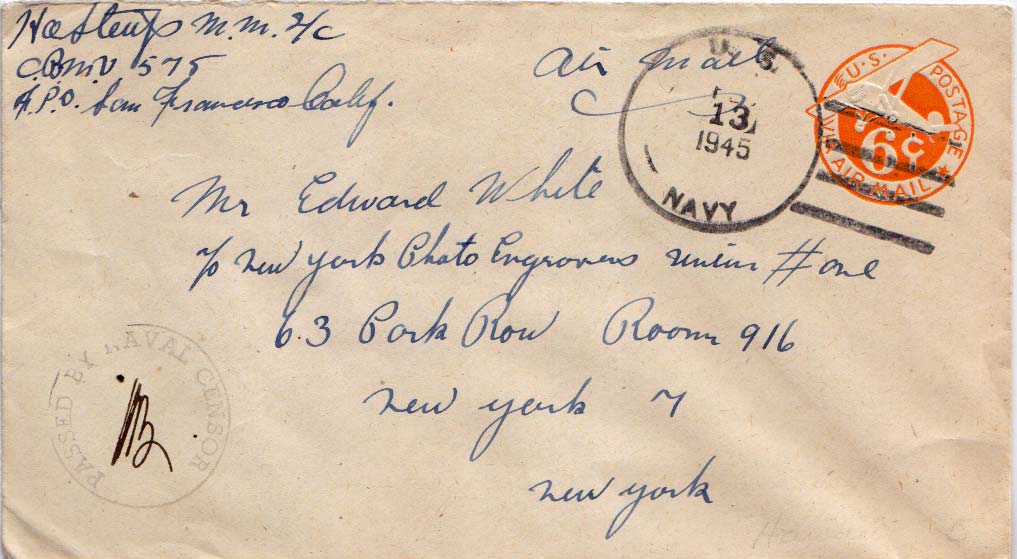 M.M. 2/c
C.B.M.U 575
F.P.O. San Francisco Calif.
Air Mail
U. S.
13
1945
NAVY
U.S. POSTAGE
6¢
VIA AIR MAIL
Mr Edward White
c/o New York Photo Engravers union #one
63 Park Row Room 916
New York 7
New York
PASSED BY NAVAL CENSOR